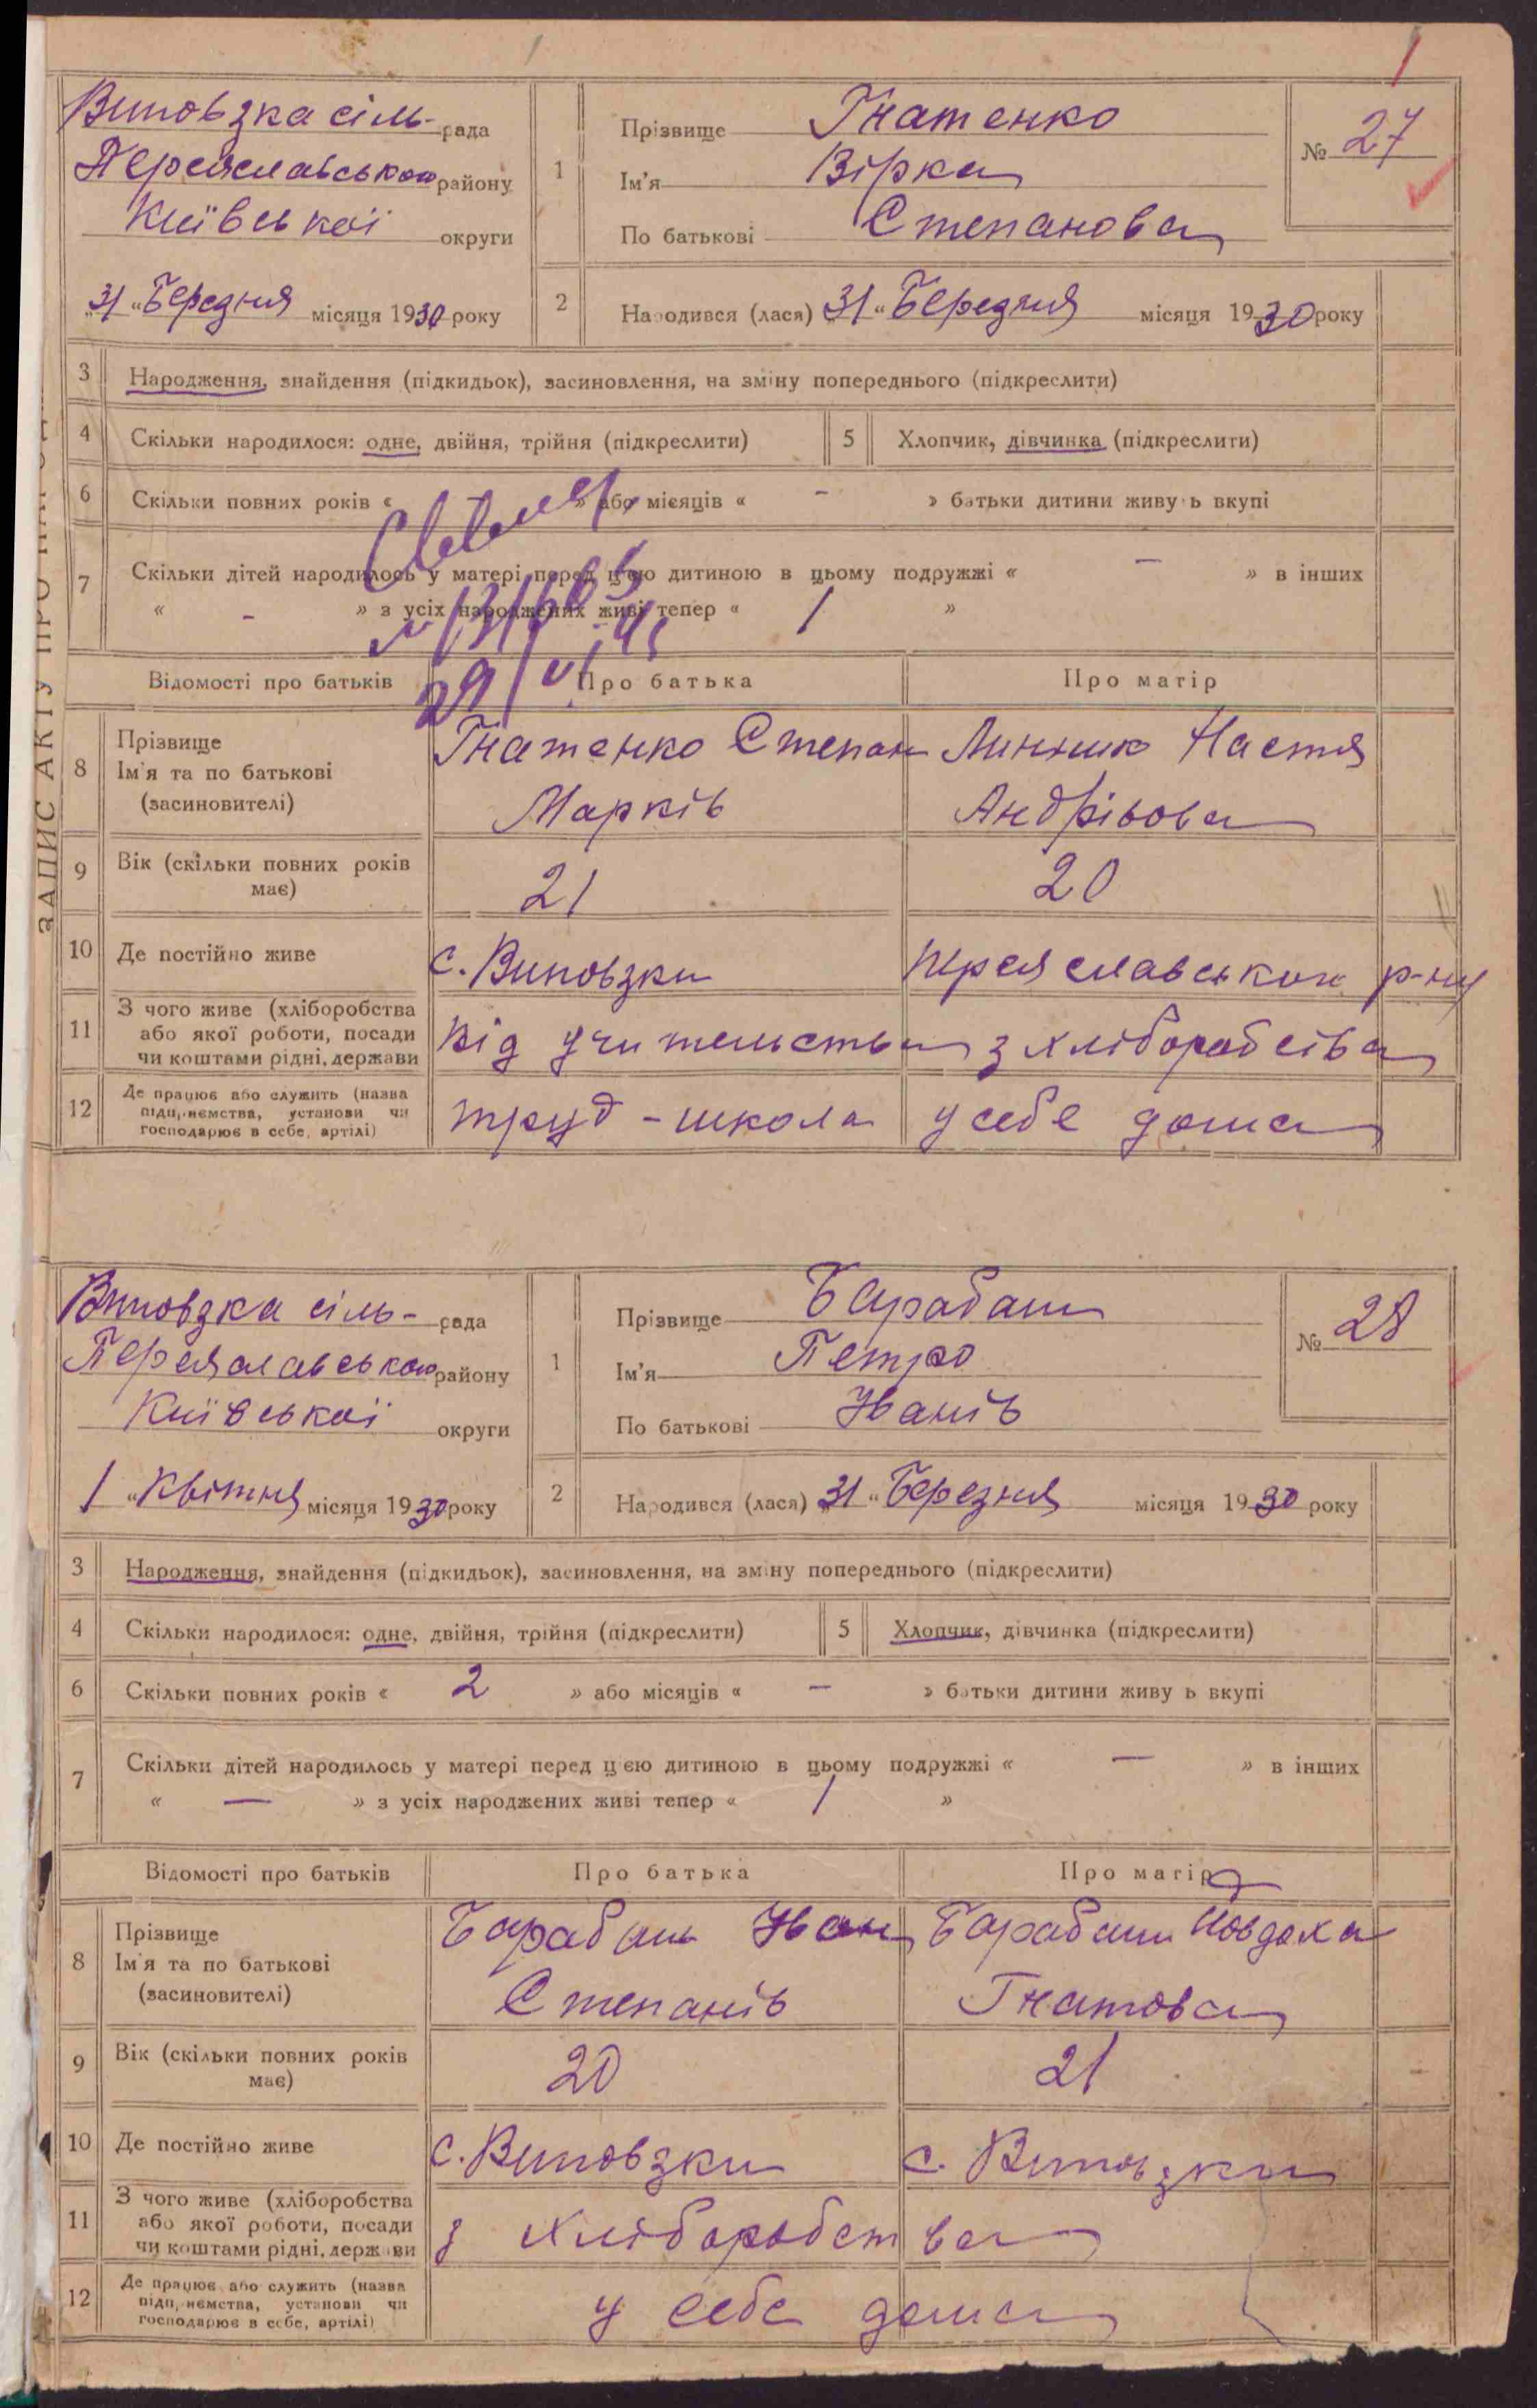 1
ЗАПИС АКТУ ПРО
Виповзка сіль-рада
Переяславського району
Київської округи
„31“ Березня місяця 1930 року
1
Прізвище Гнатенко
Ім'я Вірка
По батькові Степанова
№ 27
2
Народився (лася) „31“ Березня місяця 1930 року
3 Народження, знайдення (підкидьок), засиновлення, на зміну попереднього (підкреслити)
4 Скільки народилося: одне, двійня, трійня (підкреслити)
5 Хлопчик, дівчинка (підкреслити)
6 Скільки повних років « » або місяців « - » батьки дитини живуть вкупі
7 Скільки дітей народилось у матері перед цією дитиною в цьому подружжі « — » в інших
« - » з усіх народжених живі тепер « 1 »
29/VI
Відомості про батьків Про батька Про матір
8 Прізвище
Ім'я та по батькові
(засиновителі)
Гнатенко Степан
Марків
Линник Настя
Андрівова
9 Вік (скільки повних років
має)
21 20
10 Де постійно живе с. Виповзки Переяславськог р-ну
11 З чого живе (хліборобства
або якої роботи, посади
чи коштами рідні, держави
від учительства з хліборобства
12 Де працює або служить (назва
підприємства, установи чи
господарює в себе, артілі)
труд-школа у себе дома
Виповзка сіль-рада
Переяславського району
Київської округи
1 „Квітня місяця 1930 року
1
Прізвище Барабаш
Ім'я Петро
По батькові Іванів
№ 28
2
Народився (лася) „31“ Березня місяця 1930 року
3 Народження, знайдення (підкидьок), засиновлення, на зміну попереднього (підкреслити)
4 Скільки народилося: одне, двійня, трійня (підкреслити)
5 Хлопчик, дівчинка (підкреслити)
6 Скільки повних років « 2 » або місяців « — » батьки дитини живуть вкупі
7 Скільки дітей народилось у матері перед цією дитиною в цьому подружжі « — » в інших
« — » з усіх народжених живі тепер « 1 »
Відомості про батьків Про батька Про матір
8 Прізвище
Ім'я та по батькові
(засиновителі)
Барабаш Іван
Степанів
БарабашЮвдоха
Гнатова
9 Вік (скільки повних років
має)
20 21
10 Де постійно живе с. Виповзки с. Виповзки
11 З чого живе (хліборобства
або якої роботи, посади
чи коштами рідні, держави
з хліборобства
12 Де працює або служить (назва
підприємства, установи чи
господарює в себе, артілі)
у себе дома